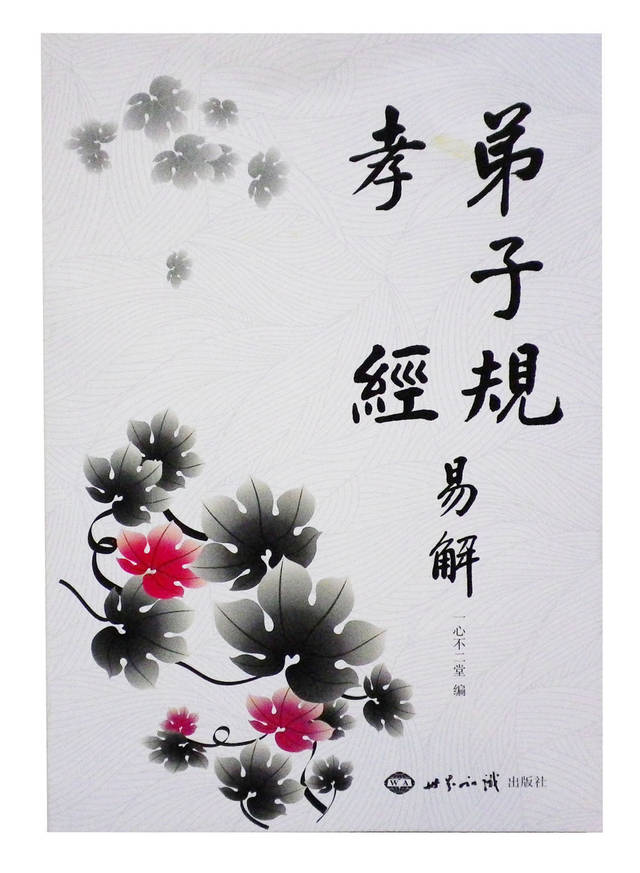 弟子規
孝經
易解
一心不二堂 编
WA 世界知识 出版社